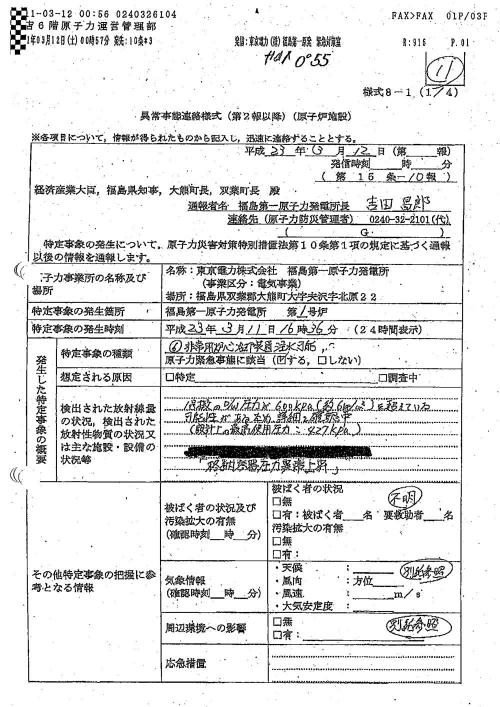 1-03-12 00:56 0240326104
FAX>FAX 01P/03F
吉6階原子力運営管理部
1年03月12日(土)00時57分
発信:東京電力(株)福島第一原発 緊急対策室
R:916 P.01
0:55
①
様式8-1 (1/4)
異常事態連絡様式(第2報以降)(原子炉施設)
※各項目について、情報が得られたものから記入し、迅速に連絡することとする。
平成 23 年 3 月 12 日(第 報)
発信時刻 時 分
(第 15 条-10報)
経済産業大臣,福島県知事,大熊町長,双葉町長 殿
通報者名 福島第一原子力発電所長 吉田 昌郎
連絡先(原子力防災管理者) 0240-32-2101(代)
( G )
特定事象の発生について、原子力災害対策特別措置法第10条第1項の規定に基づく通報
以後の情報を通報します。
子力事業所の名称及び
場所
名称:東京電力株式会社 福島第一原子力発電所
(事業区分:電気事業)
場所:福島県双葉郡大熊町大字夫沢字北原22
特定事象の発生箇所
福島第一原子力発電所 第1号炉
特定事象の発生時刻
平成23年3月11日16時36分(24時間表示)
発生した特定事象の概要
特定事象の種類
⑥非常用炉心冷却装置注水不能
原子力緊急事態に該当(☑する,□しない)
想定される原因
□特定
□調査中
検出された放射線量
の状況,検出された
放射性物質の状況又
は主な施設・設備の
状況等
1号機のD/W圧力が600kPaを超えている
可能性があるため、詳細を確認中
(設計上の最高使用圧力:427kPa)
「格納容器圧力異常上昇」
その他特定事象の把握に参
考となる情報
被ばく者の状況及び
汚染拡大の有無
(確認時刻 時 分)
被ばく者の状況
□無
□有:被ばく者 名 要救助者 名
汚染拡大の有無
□無
□有:
不明
気象情報
(確認時刻 時 分)
・天候 :
・風向 :方位
・風速 : m/s
・大気安定度 :
別紙参照
周辺環境への影響
□無
□有:
別紙参照
応急措置